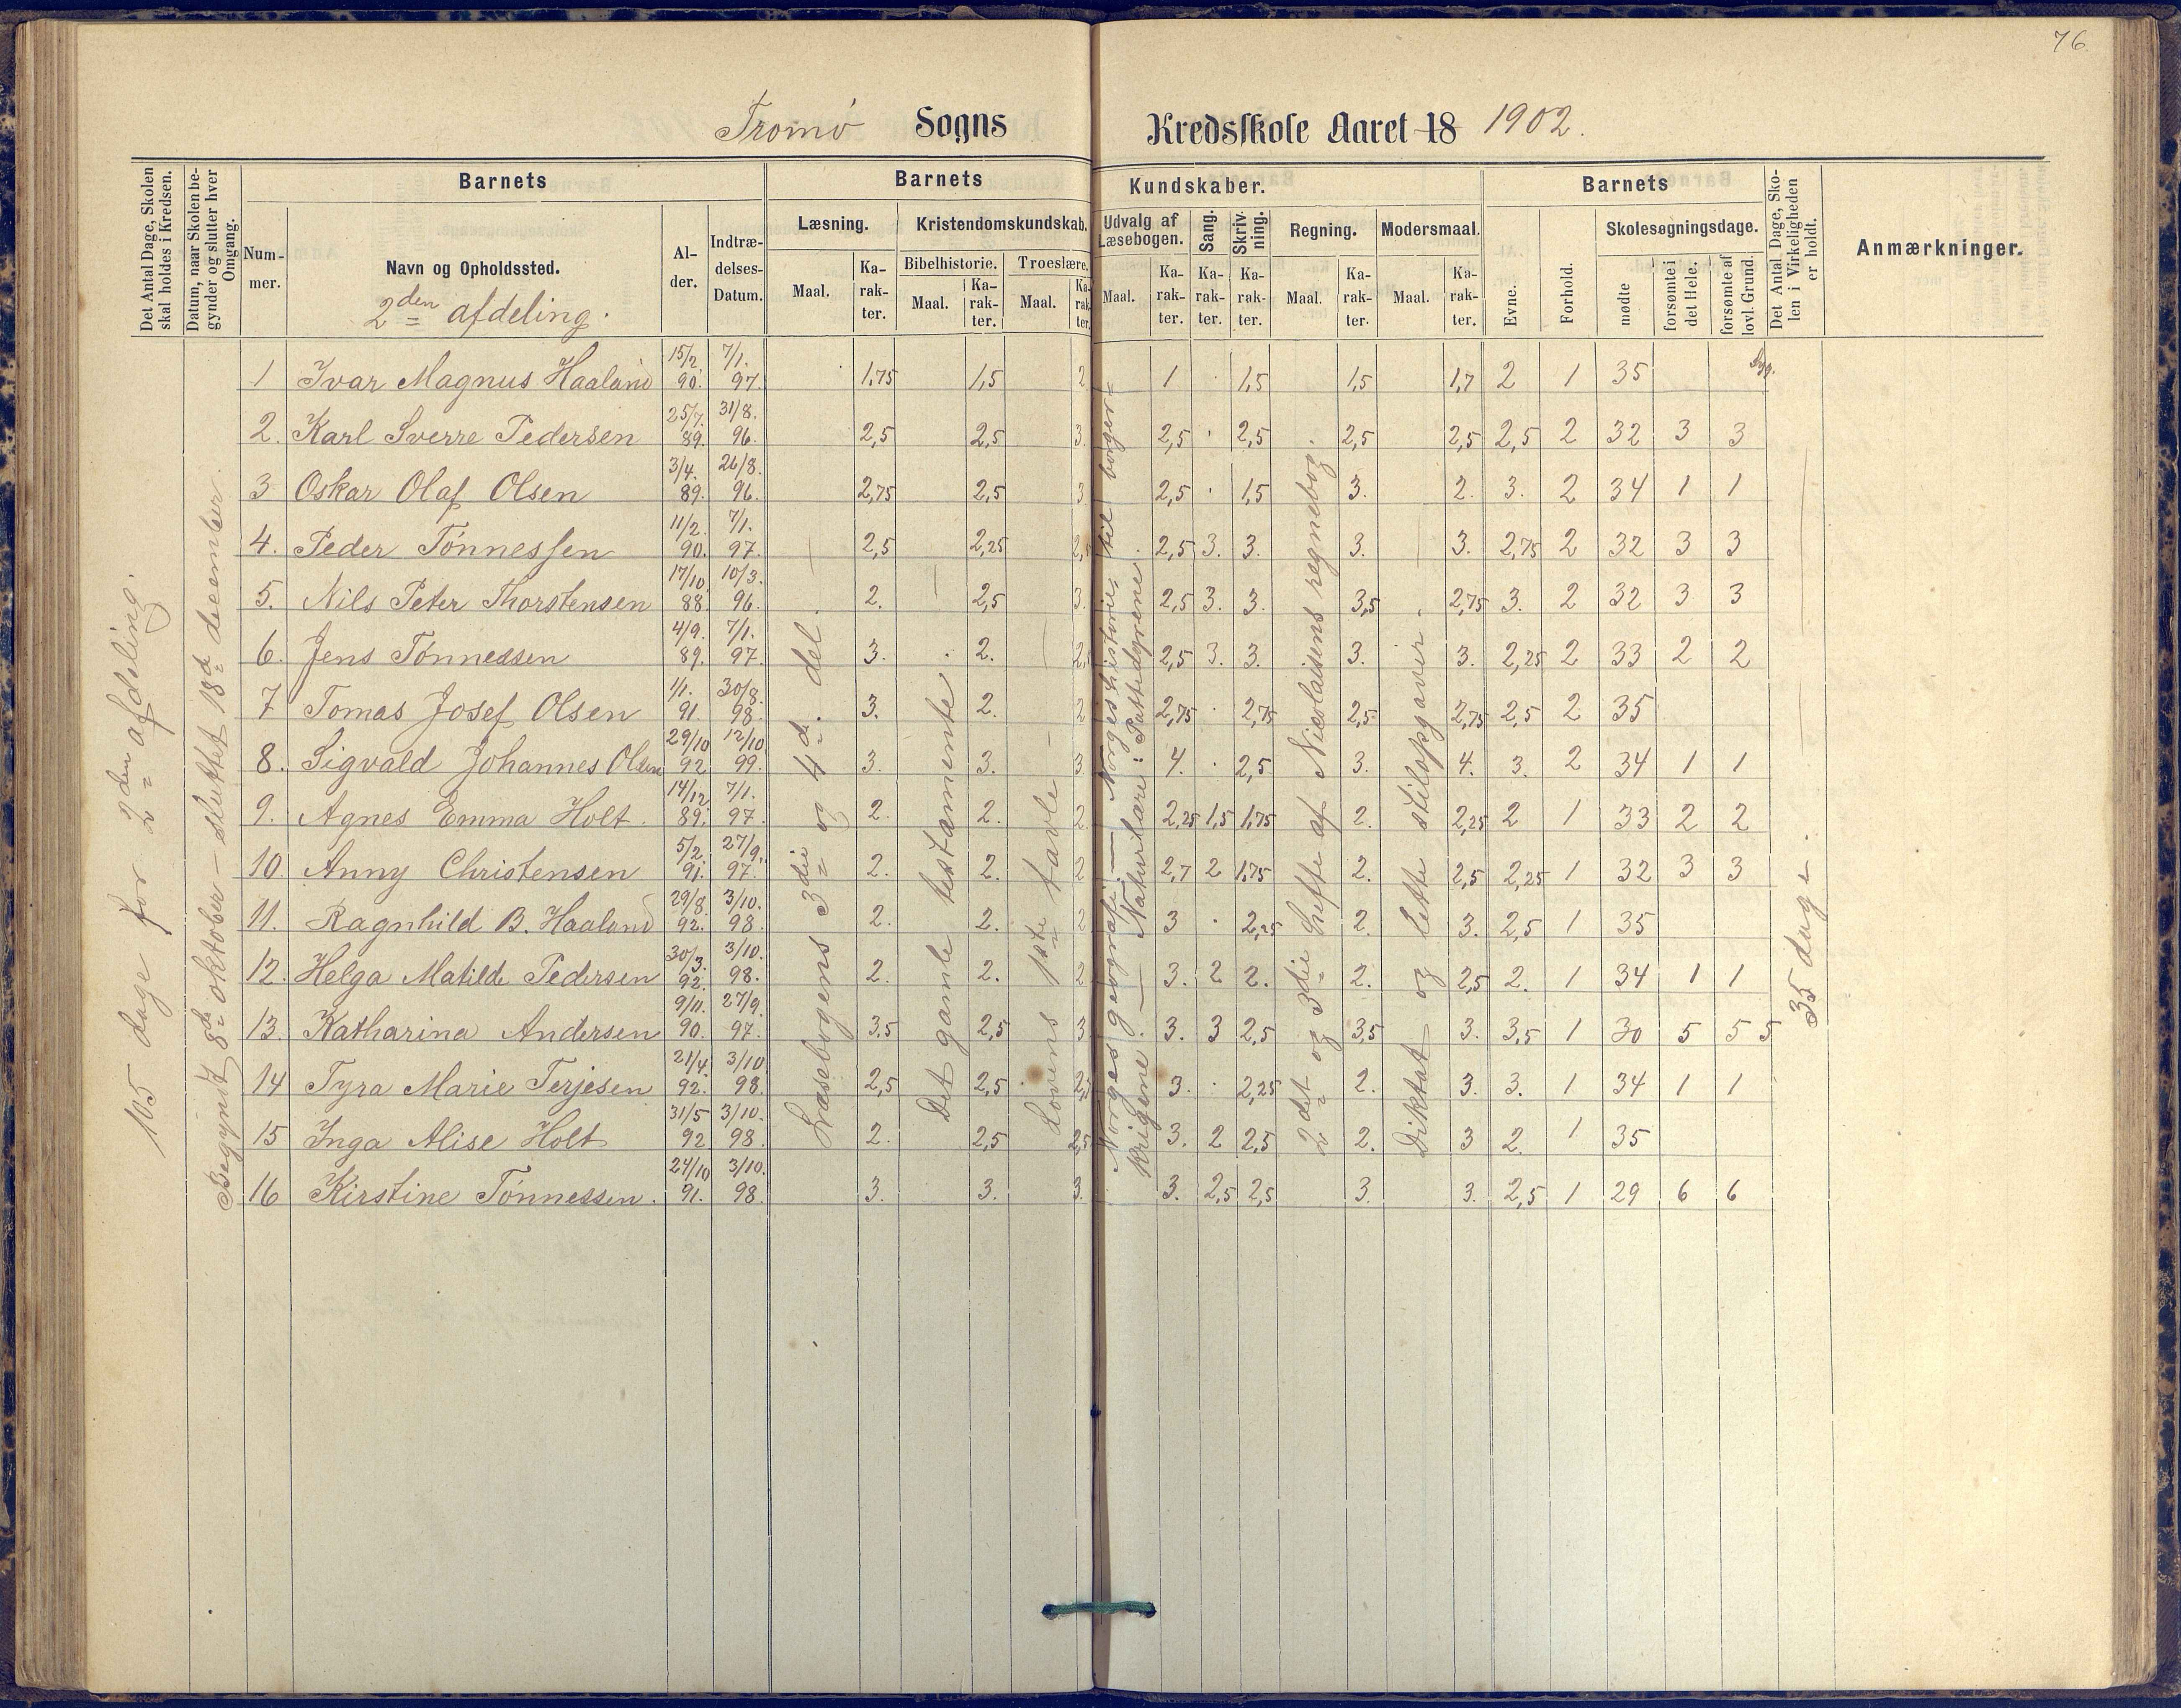 76.
Tromø Sogns Kredsskole Aaret 18 1902.
Det Antal Dage, Skolen skal holdes i Kredsen.
Datum, naar Skolen begynder og slutter hver Omgang.
Barnets
Nummer.
Navn og Opholdssted.
2den afdeling.
Alder.
Indtrædelses-Datum.
Barnets Kundskaber.
Læsning.
Maal.
Karakter.
Kristendomskundskab.
Bibelhistorie.
Maal.
Karakter.
Troeslære.
Maal.
Karakter.
Udvalg af Læsebogen.
Maal.
Karakter.
Sang.
Karakter.
Skrivning.
Karakter.
Regning.
Maal.
Karakter.
Modersmaal.
Maal.
Karakter.
Barnets
Evne.
Forhold.
Skolesøgningsdage.
mødte
forsømte i det Hele.
forsømte af lovl. Grund.
Det Antal Dage, Skolen i Virkeligheden er holdt.
Anmærkninger.
105 dage for 2den afdeling.
Begyndt 8de oktober – sluttet 18d december.
Læsebogens 3die og 4de del.
Det gamle testamente
Lovens 1ste tavle
Norges geografi. – Norges historie, til borgerkrigene. – Naturlære: Pattedyrene
2det og 3die hefte af Nicolaisens regnebog
Diktat og lette stilopgaver.
35 dage.
1 Ivar Magnus Haaland 15/2. 90. 7/1. 97. 1,75 1,5 2 1 . 1,5 1,5 1,7 2 1 35 Syg.
2. Karl Sverre Pedersen 25/7. 89. 31/8. 96. 2,5 2,5 3. 2,5 . 2,5 2,5 2,5 2,5 2 32 3 3
3 Oskar Olaf Olsen 3/4. 89. 26/8. 96. 2,75 2,5 3 2,5 . 1,5 3. 2. 3. 2 34 1 1
4. Peder Tønnessen 11/2. 90. 7/1. 97. 2,5 2,25 2,5 2,5 3. 3. 3. 3. 2,75 2 32 3 3
5. Nils Peter Thorstensen 17/10. 88. 10/3. 96. 2. 2,5 3. 2,5 3. 3. 3,5 2,75 3. 2 32 3 3
6. Jens Tønnessen 4/9. 89. 7/1. 97. 3. 2. 2,5 2,5 3. 3. 3. 3. 2,25 2 33 2 2
7 Tomas Josef Olsen 1/1. 91. 30/8. 98. 3. 2. 2 2,75 . 2,75 2,5 2,75 2,5 2 35
8. Sigvald Johannes Olsen 29/10 92 12/10 99. 3. 3. 3 4. . 2,5 3. 4. 3. 2 34 1 1
9. Agnes Emma Holt. 14/12. 89. 7/1. 97. 2. 2. 2 2,25 1,5 1,75 2. 2,25 2 1 33 2 2
10. Anny Christensen 5/2. 91. 27/9. 97. 2. 2. 2 2,7 2 1,75 2. 2,5 2,25 1 32 3 3
11. Ragnhild B. Haaland 29/8. 92. 3/10. 98. 2. 2. 2 3 . 2,25 2. 3. 2,5 1 35
12. Helga Matilde Pedersen 30/3. 92. 3/10. 98. 2. 2. 2 3. 2 2. 2. 2,5 2. 1 34 1 1
13. Katharina Andersen 9/11. 90. 27/9. 97. 3,5 2,5 3 3. 3 2,5 3,5 3. 3,5 1 30 5 5 5
14 Tyra Marie Terjesen 21/4. 92. 3/10 98. 2,5 2,5 2,5 3. . 2,25 2. 3. 3. 1 34 1 1
15 Inga Alise Holt 31/5 92 3/10. 98. 2. 2,5 2,5 3. 2 2,5 2. 3 2. 1 35
16 Kirstine Tønnessen. 24/10 91. 3/10. 98. 3. 3. 3. 3. 2,5 2,5 3. 3. 2,5 1 29 6 6